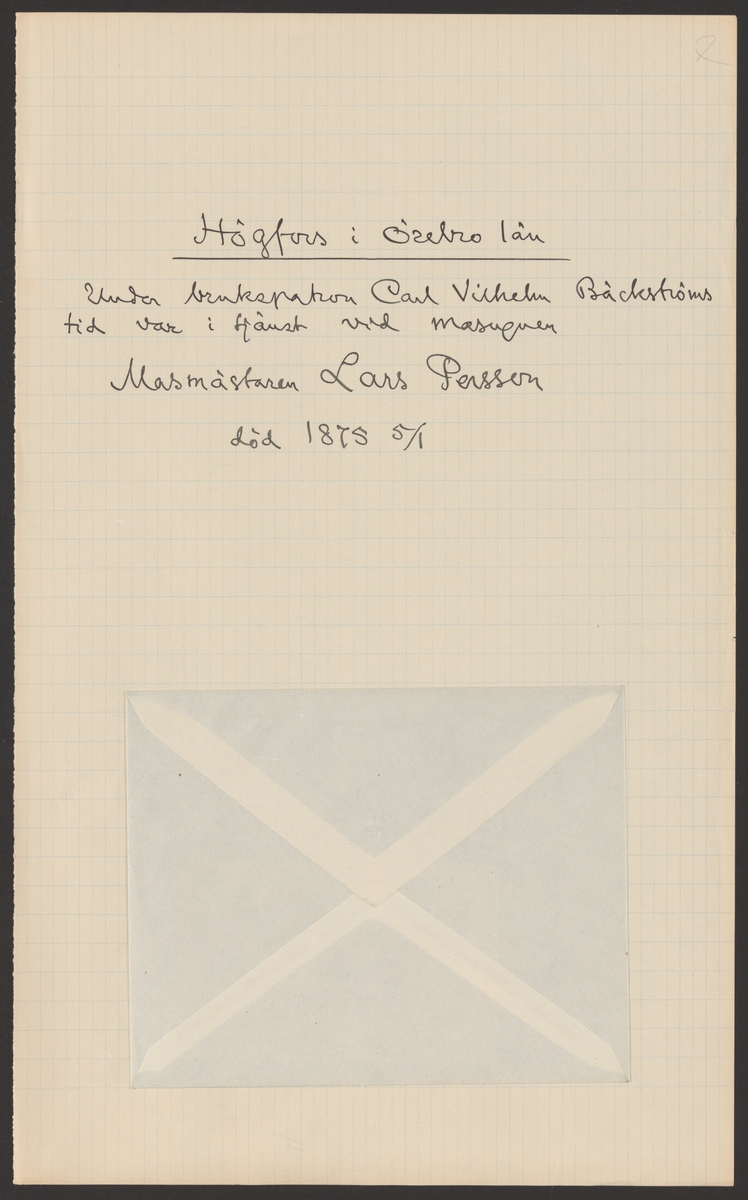 2
Högfors i Örebro län
Under brukspatron Carl Vilhelm Bäckströms
tid var i tjänst vid masugnen
Masmästaren Lars Persson
död 1875 5/1